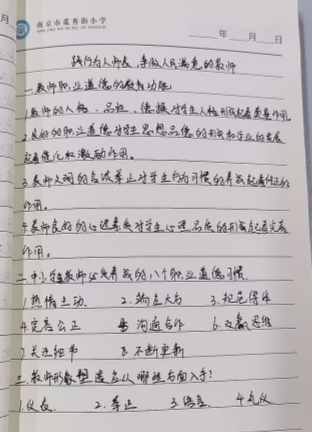 南京市莫秀街小学
年 月 日
践行为人师表,争做人民满意的教师
一.教师职业道德的教育功能
1.教师的人格、品性、德操对学生人格形成起着奠基作用.
2.良好的职业道德对学生思想品德的形成和学业的发展
起着催化和激励作用。
3.教师文明的言谈举止对学生行为习惯的养成起着修正的
作用.
4.教师良好的心理素质对学生心理品质的形成起着完善
作用。
二.中小学教师必须养成的八个职业道德习惯.
1.热情主动. 2.端庄大方 3.规范得体
4.宽容公正 5 沟通合作 6.双赢思维
7.关注细节 8.不断更新
三.教师形象塑造应从哪些方面入手?
1.仪表. 2.举止 3.语言. 4.礼仪